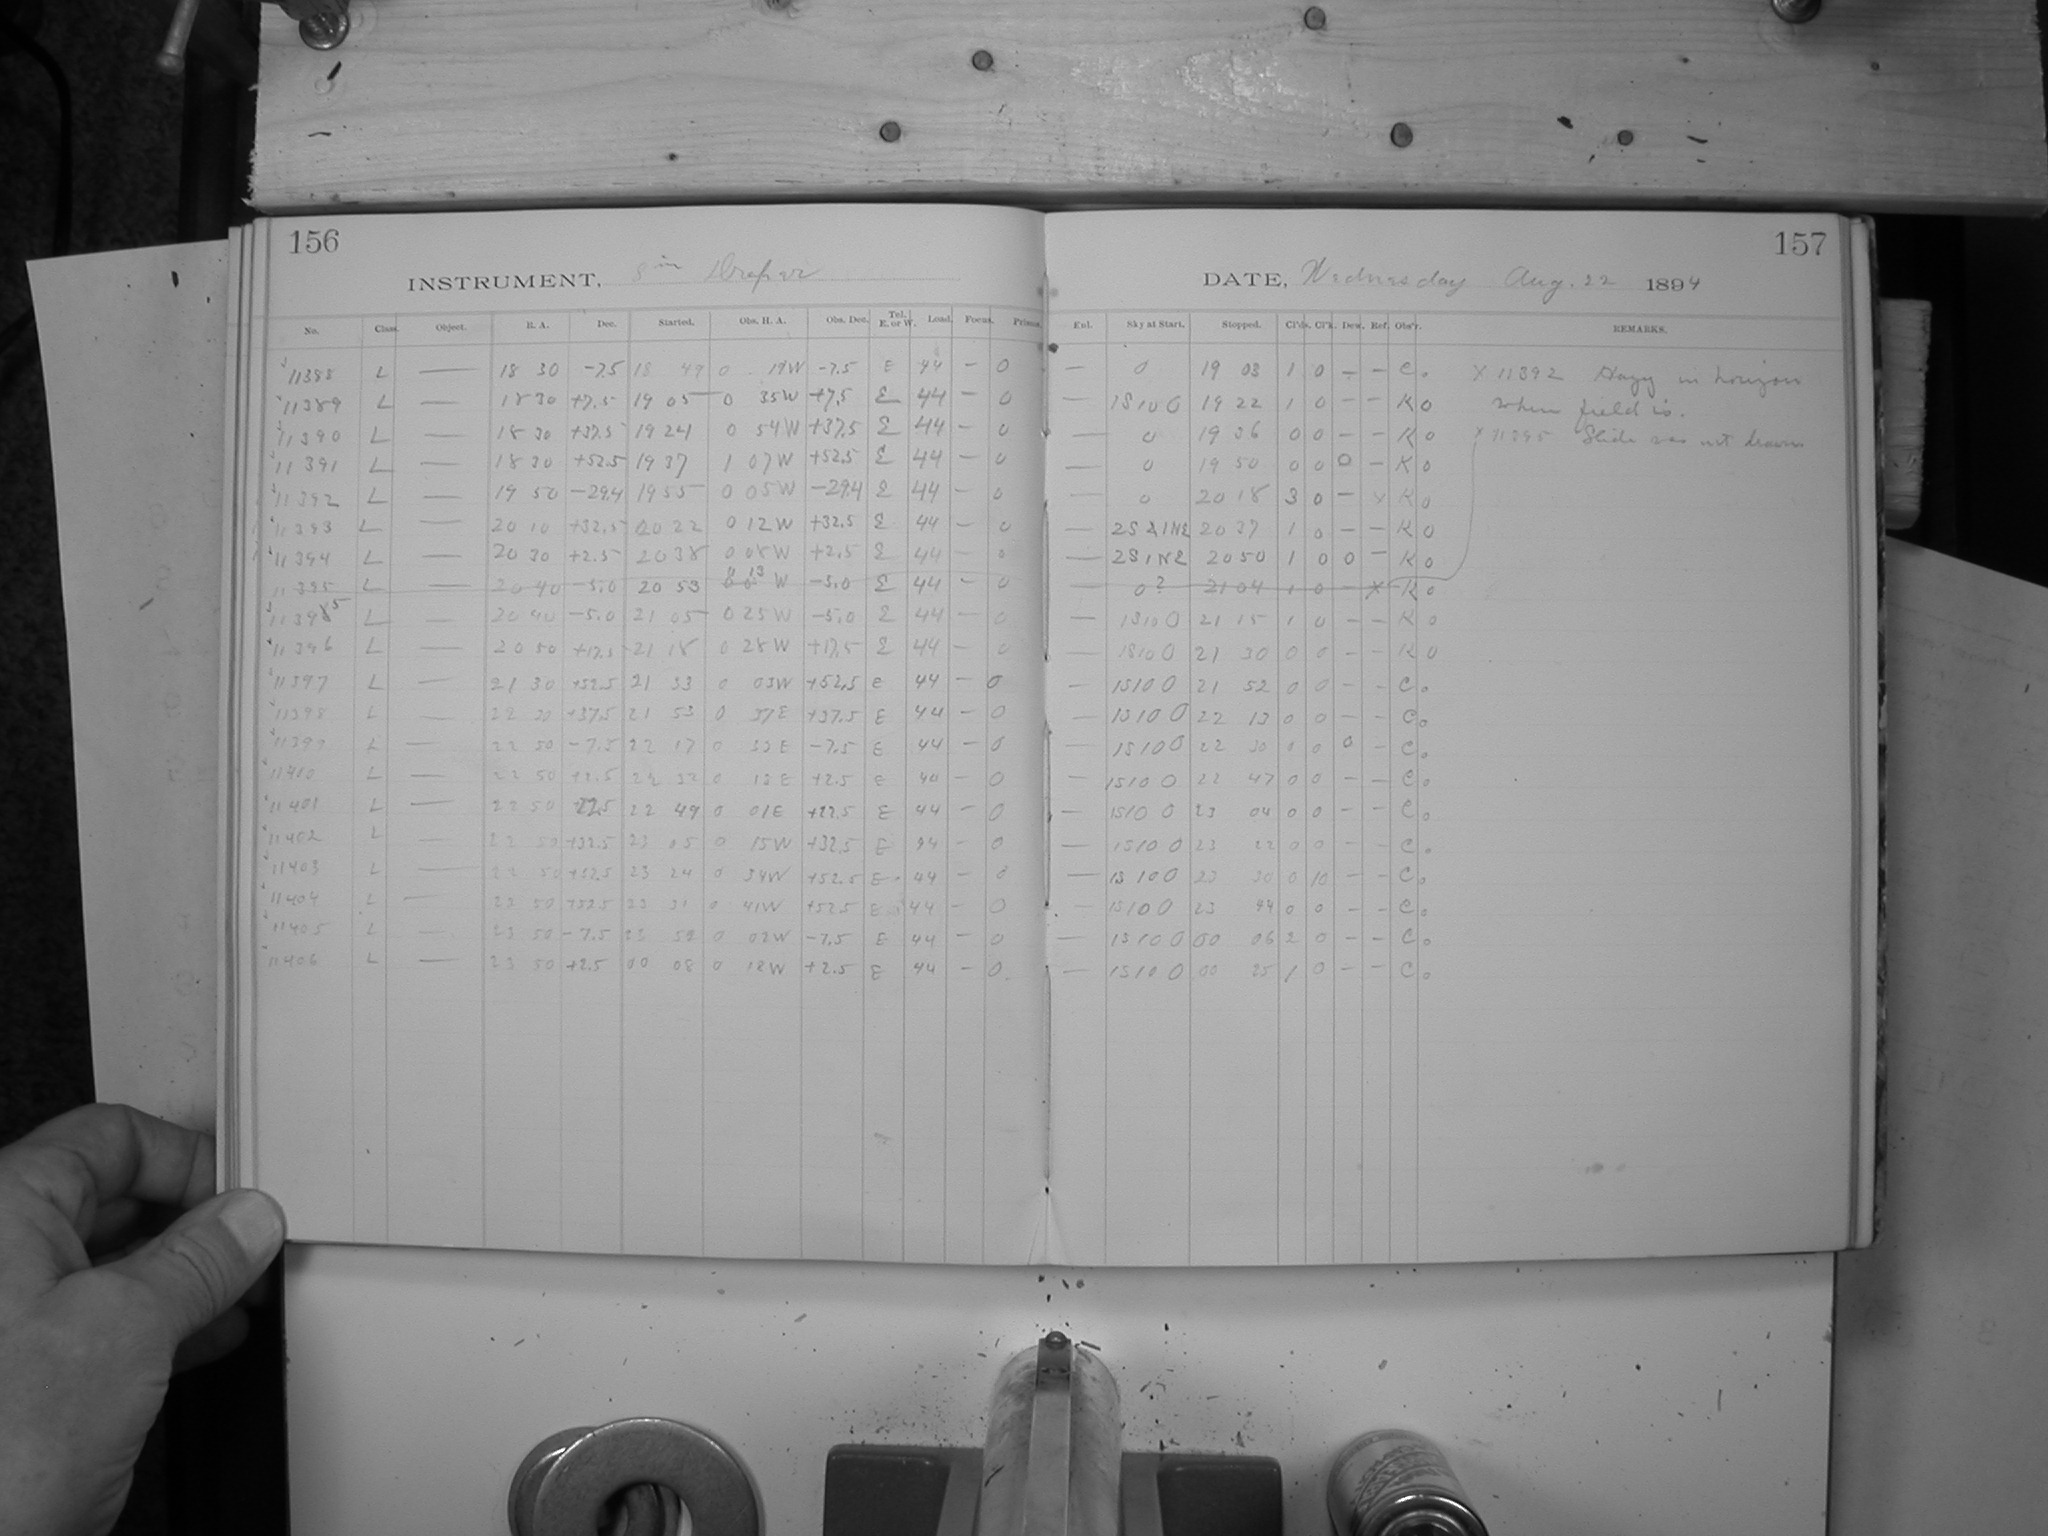 156
157
INSTRUMENT, 8 in Draper
DATE, Wednesday Aug. 22 1894
No. Class. Object. R. A. Dec. Started. Obs. H. A. Obs. Dec. Tel. E. or W. Load. Focus. Prisms. Enl. Sky at Start. Stopped. Cl'ds. Cl'k. Dew. Ref. Obs'r. REMARKS.
11388 L — 18 30 -7.5 18 49 0 19W -7.5 E 44 - 0 — 0 19 03 1 0 - - C. x 11392 Hazy in horizon
11389 L — 18 30 +7.5 19 05 0 35W +7.5 E 44 - 0 — 1S10 0 19 22 1 0 - - K o where field is.
11390 L — 18 30 +37.5 19 24 0 54W +37.5 E 44 - 0 — 0 19 36 0 0 - - K o x 11395 Slide was not drawn
11391 L — 18 30 +52.5 19 37 1 07W +52.5 E 44 - 0 — 0 19 50 0 0 0 - K o
11392 L — 19 50 -29.4 19 55 0 05W -29.4 E 44 - 0 — 0 20 18 3 0 - x K o
11393 L — 20 10 +32.5 20 22 0 12W +32.5 E 44 - 0 — 2S21NE 20 37 1 0 - - K o
11394 L — 20 30 +2.5 20 38 0 08W +2.5 E 44 - 0 — 2S1NE 20 50 1 0 0 - K o
11395 L — 20 40 -5.0 20 53 0 13 W -5.0 E 44 - 0 — 0? 21 04 1 0 - x K o
11395 L — 20 40 -5.0 21 05 0 25W -5.0 E 44 - 0 — 1S10 0 21 15 1 0 - - K o
11396 L — 20 50 +17.5 21 18 0 28W +17.5 E 44 - 0 — 1S10 0 21 30 0 0 - - K o
11397 L — 21 30 +52.5 21 33 0 03W +52.5 E 44 - 0 — 1S10 0 21 52 0 0 - - C.
11398 L — 22 30 +37.5 21 53 0 37E +37.5 E 44 - 0 — 1S10 0 22 13 0 0 - - C.
11399 L — 22 50 -7.5 22 17 0 33E -7.5 E 44 - 0 — 1S10 0 22 30 0 0 0 - C.
11400 L — 22 50 +2.5 22 32 0 18E +2.5 E 40 - 0 — 1S10 0 22 47 0 0 - - C.
11401 L — 22 50 +22.5 22 49 0 01E +22.5 E 44 - 0 — 1S10 0 23 04 0 0 - - C.
11402 L — 22 50 +32.5 23 05 0 15W +32.5 E 44 - 0 — 1S10 0 23 22 0 0 - - C.
11403 L — 22 50 +52.5 23 24 0 34W +52.5 E 44 - 0 — 1S10 0 23 30 0 10 - - C.
11404 L — 22 50 +52.5 23 31 0 41W +52.5 E 44 - 0 — 1S10 0 23 44 0 0 - - C.
11405 L — 23 50 -7.5 23 52 0 02W -7.5 E 44 - 0 — 1S10 0 00 06 2 0 - - C.
11406 L — 23 50 +2.5 00 08 0 18W +2.5 E 44 - 0 — 1S10 0 00 25 1 0 - - C.